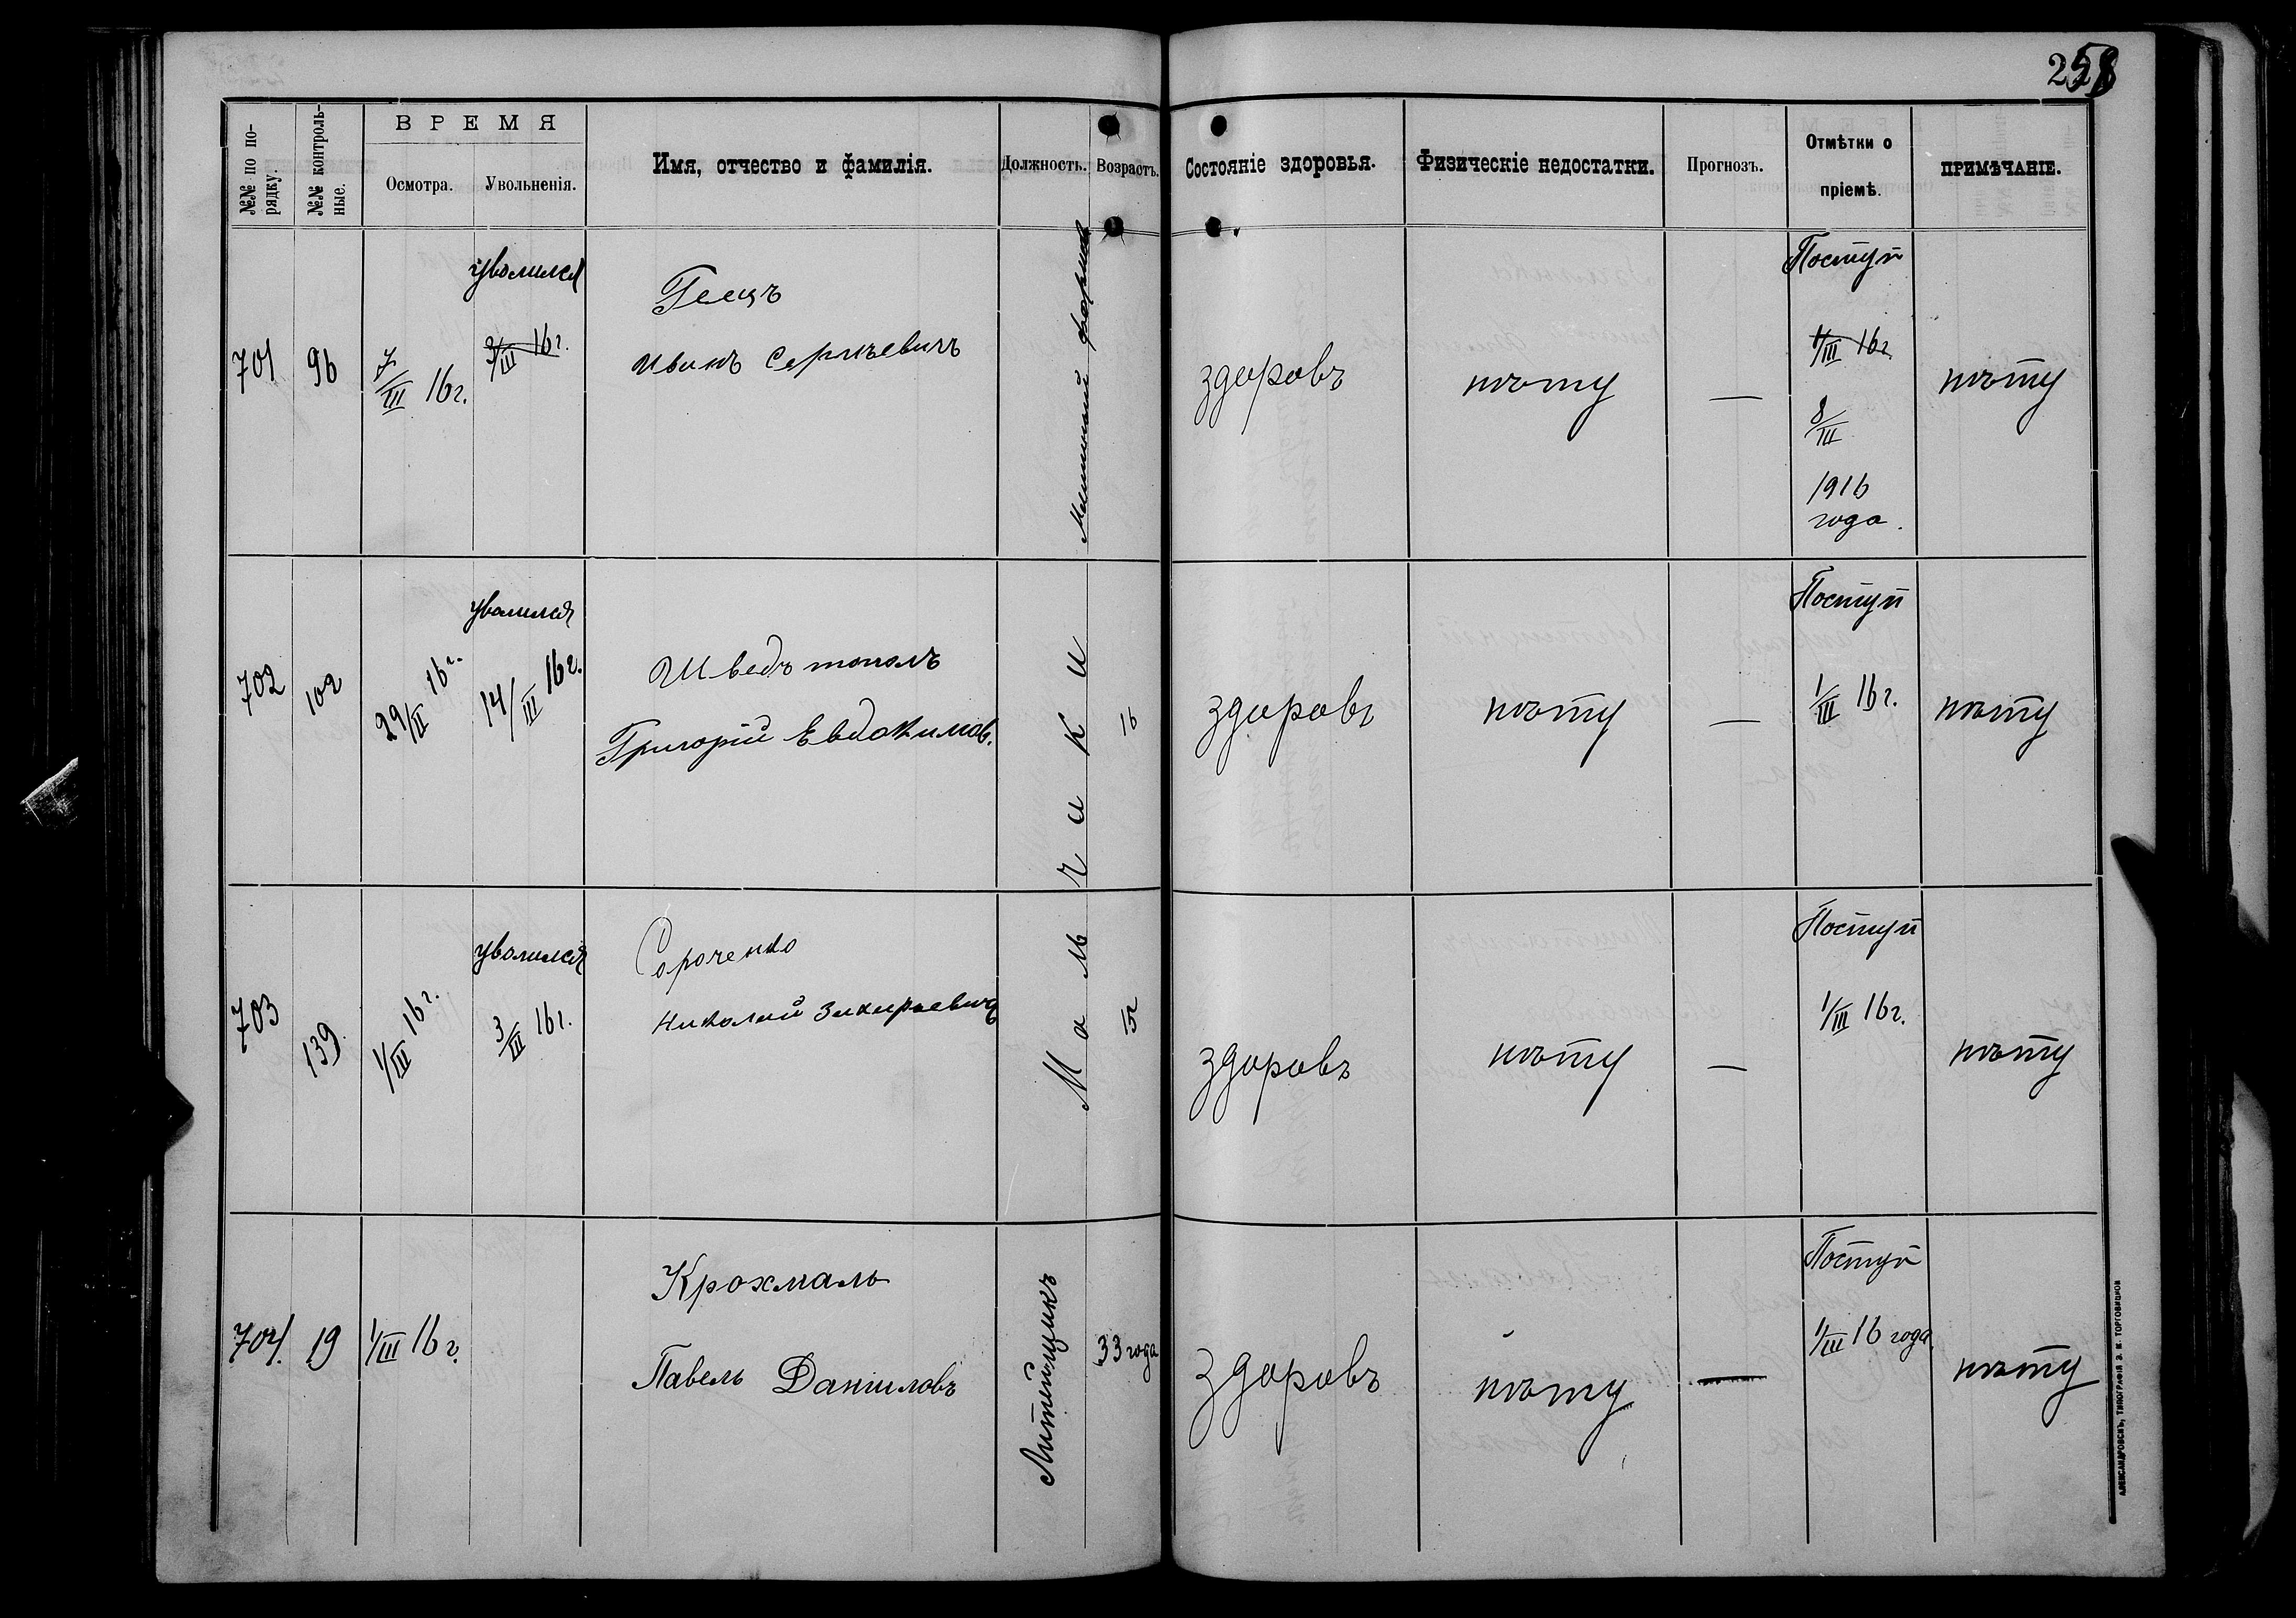 258
№№ по по-
рядку.
№№ контроль-
ные.
ВРЕМЯ
Осмотра.
Увольненія.
Имя, отчество и фамилія.
Должность.
Возрастъ.
Состояніе здоровья.
Физическіе недостатки.
Прогнозъ.
Отмѣтки о
пріемѣ.
ПРИМѢЧАНІЕ.
701
96
7/III 16г.
уволился
3/III 16г.
Гецъ
Иванъ Сергѣевичъ
формов
здоровъ
нѣту
—
Поступ
1/III 16г
8/III
1916
года.
нѣту
702
102
29/II 16г.
уволился
14/III 16г.
Шведъ тополъ
Григорій Евдокимов.
Мальчики
16
здоровъ
нѣту
—
Поступ
1/III 16г.
нѣту
703
139.
1/III 16г.
уволился
3/III 16г.
Сороченко
Николай Захарьевичъ
15г
здоровъ
нѣту
—
Поступ
1/III 16г.
нѣту
704.
19
1/III 16г.
Крохмаль
Павелъ Даниловъ
Литейщикъ
33 года
здоровъ
нѣту
—
Поступ
1/III 16 года
нѣту
АЛЕКСАНДРОВСКЪ, ТИПОГРАФІЯ З. И. ТОРГОВИЦКОВ